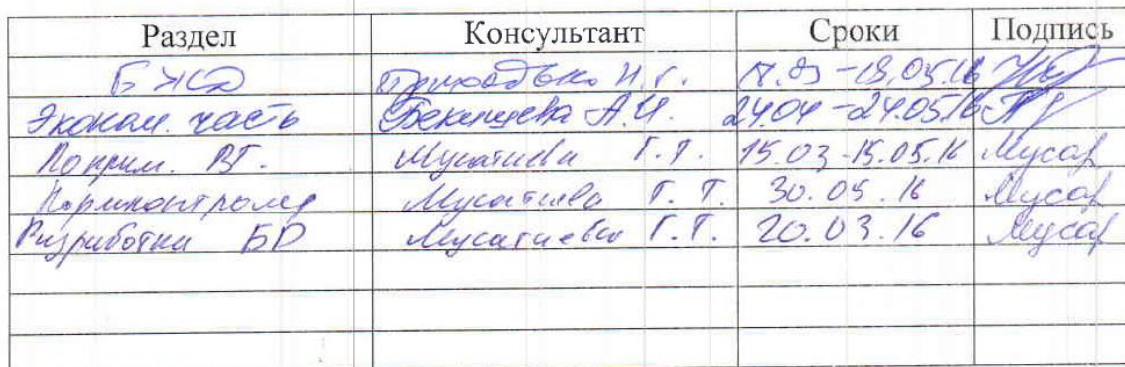 Раздел Консультант Сроки Подпись
БЖД Приходько Н.Г. -18.05.16
Эконом. часть Бекишева А.И. 24.04 -24.05.16
По прим. ВТ. Мусапиева Г.Т. 15.03-15.05.16 Мусап
Нормконтролер Мусапиева Г.Т. 30.05.16 Мусап
Разработка БД Мусапиева Г.Т. 20.03.16 Мусап